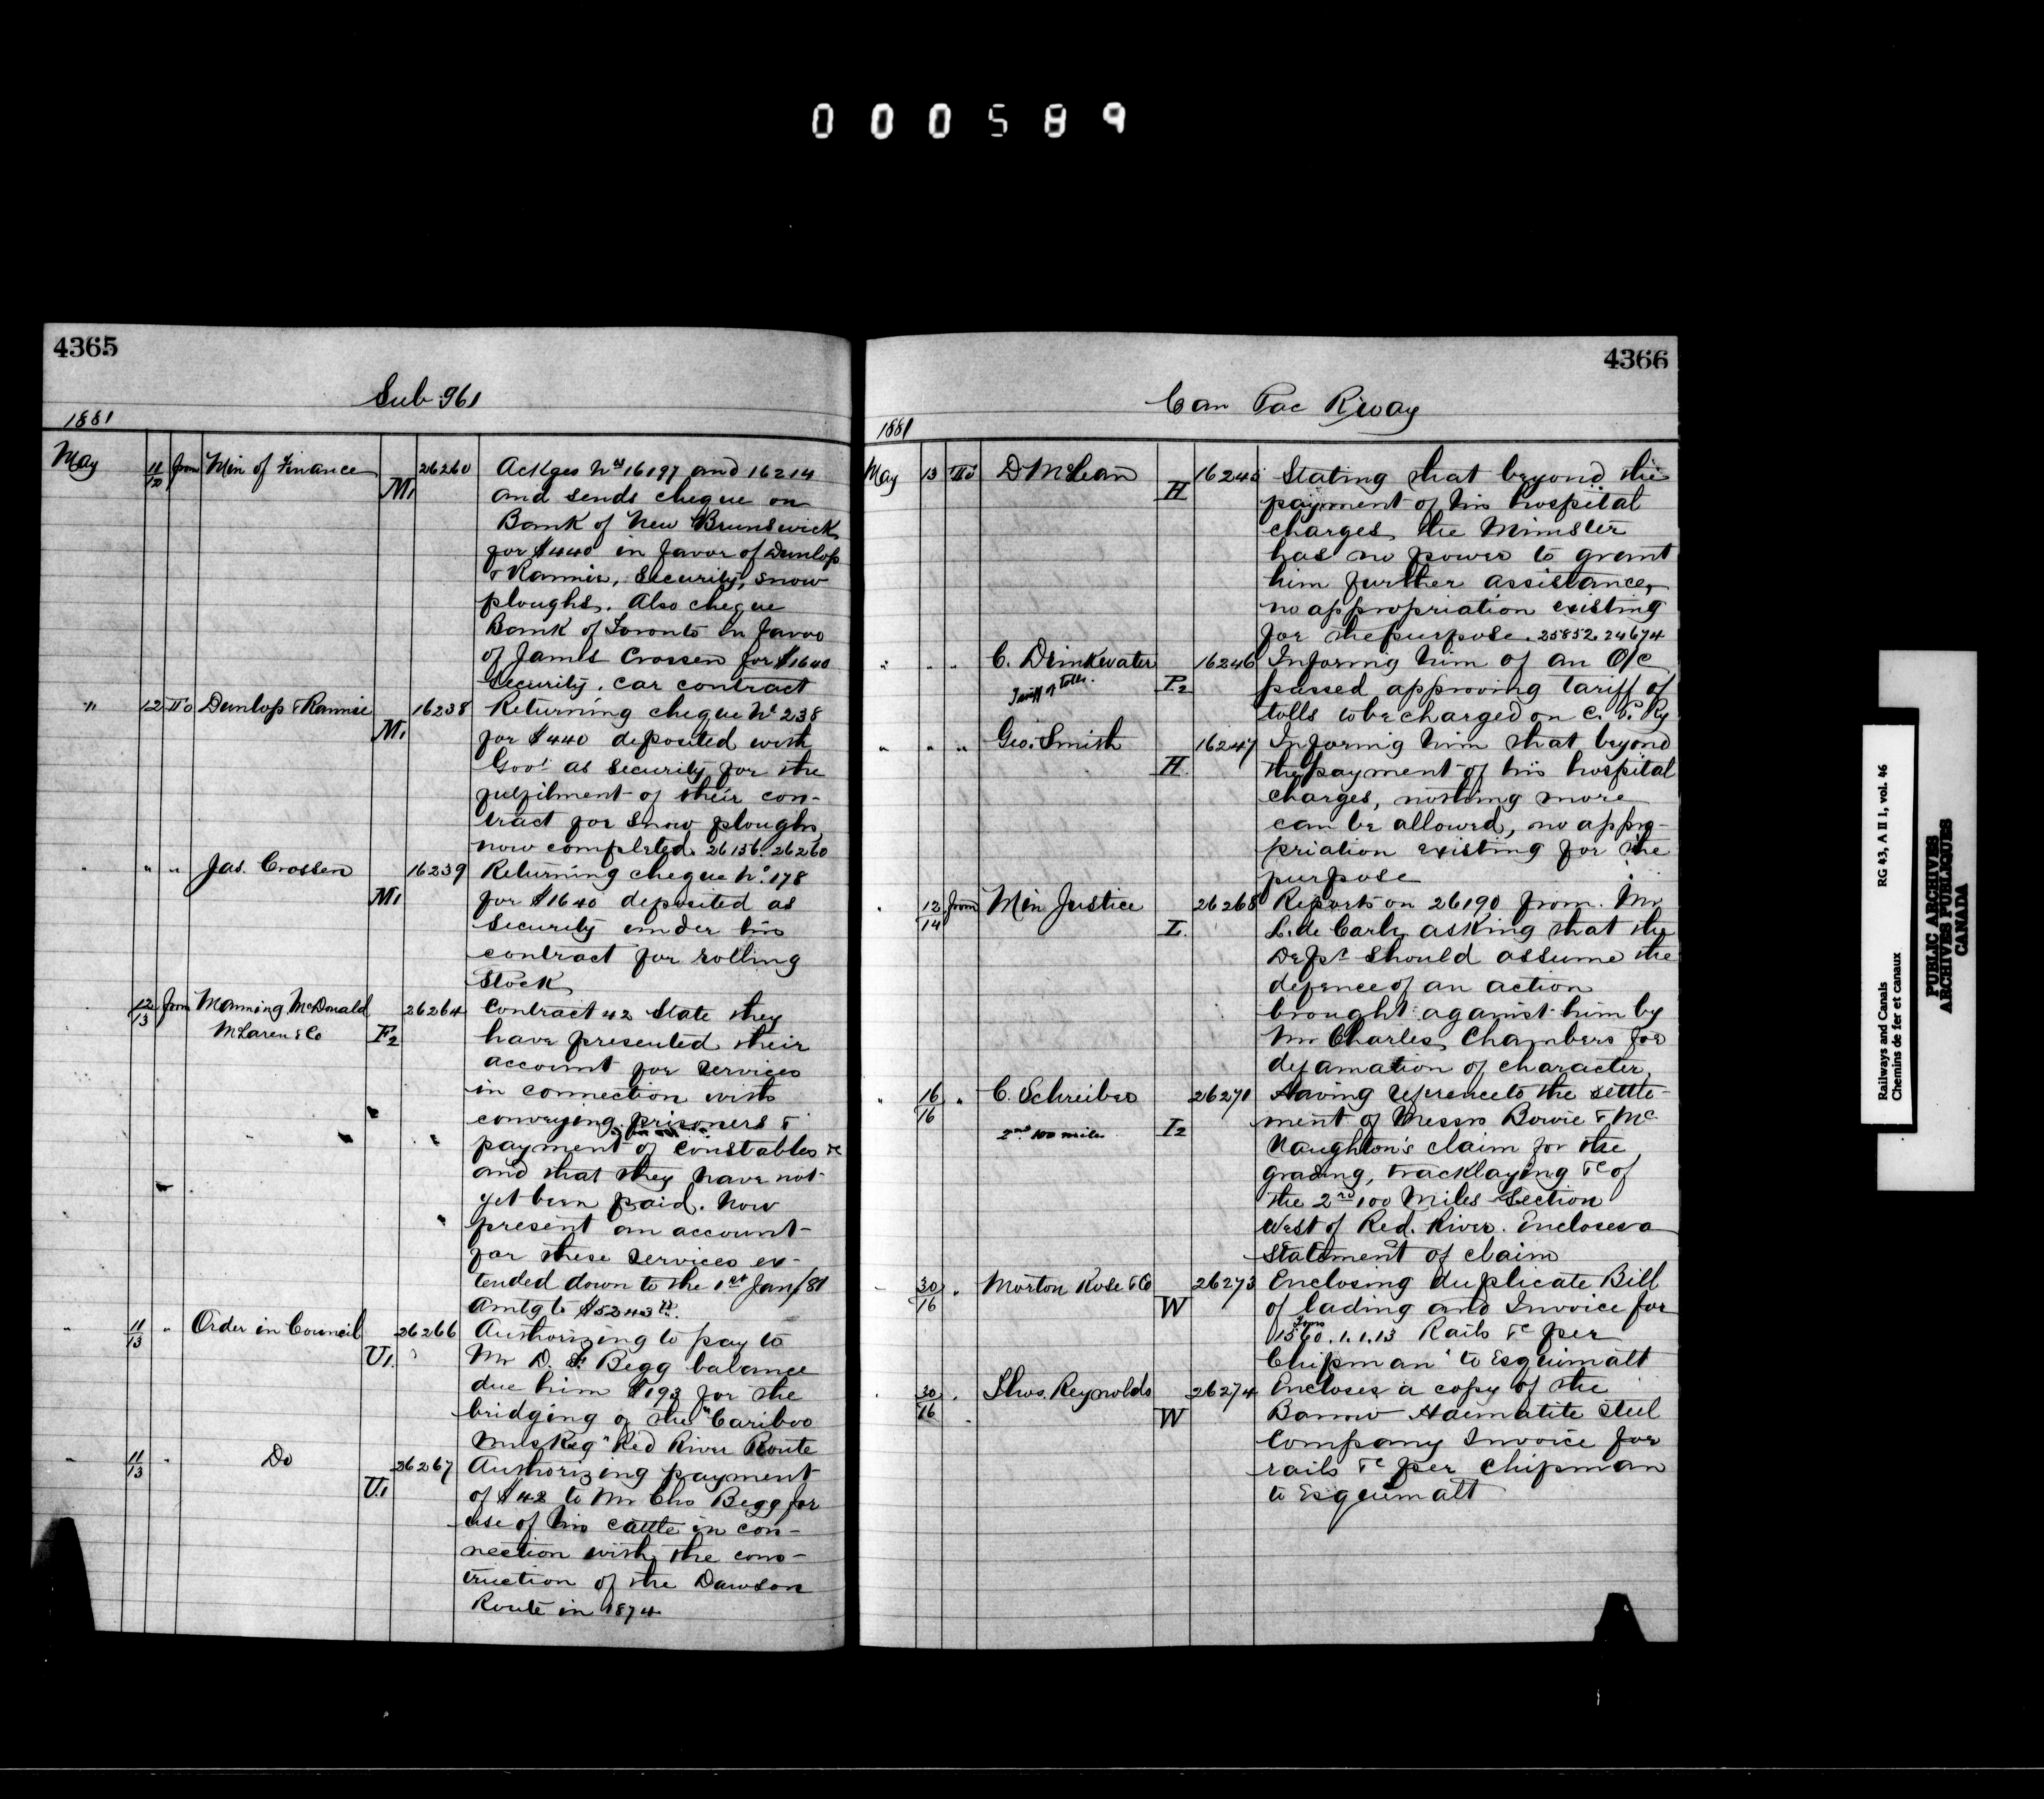 000589
4365
Sub 961
1881
May 11/12 from Min of Finance M1 26260 Ackges Nos 16197 and 16214
and sends cheque on
Bank of New Brunswick
for $440 in favor of Dunlop
& Rannie, Security, snow
ploughs. Also cheque
Bank of Toronto in favor
of James Crossen for $1640
Security. Car contract
" 12 To Dunlop & Rannie M1 16238 Returning cheque No 238
for $440 deposited with
Govt as security for the
fulfilment of their con-
tract for snow ploughs,
now completed. 26156. 26260
" " " Jas. Crossen M1 16239 Returning cheque No. 178
for $1640 deposited as
Security under his
contract for rolling
Stock
12/13 from Manning McDonald 26264 Contract 42 State they
McLaren & Co F2 have presented their
account for services
in connection with
conveying prisoners &
payment of constables &c
and that they have not
yet been paid. Now
present an account
for these services ex-
tended down to the 1st Jany/81
Amtg to $5243
" 11/13 " Order in Council U1. 26266 Authorizing to pay to
Mr D. Begg balance
due him $193 for the
bridging of the "Cariboo
Muskeg" Red River Route
" 11/13 " Do U.1 26267 Authorizing payment
of $42 to Mr Chs Begg for
use of his cattle in con-
nection with the cons-
truction of the Dawson
Route in 1874
4366
Can Pac Rway
1881
May 13 To D McLean H 16245 Stating that beyond the
payment of his hospital
charges the Minister
has no power to grant
him further assistance,
no appropriation existing
for the purpose. 25852. 24674
" " " C. Drinkwater 16246 Informing him of an O/C
Tariff of Tolls. P2 passed approving tariff of
tolls to be charged on C. P. Ry
" " " Geo. Smith 16247 Informing him that beyond
H. the payment of his hospital
charges, nothing more
can be allowed, no appro-
priation existing for the
purpose
" 12/14 from Min Justice 26268 Reports on 26190 from. Mr
I. L. de Carle, asking that the
Dept should assume the
defence of an action
brought against him by
Mr Charles Chambers for
defamation of character,
" 16/16 " C. Schreiber 26271 Having reference to the settle-
2nd 100 miles I2 ment of Messrs Bowie & Mc
Naughton's claim for the
grading, tracklaying &c of
the 2nd 100 Miles Section
West of Red. River. Encloses a
statement of claim
30/16 " Morton Rose & Co 26273 Enclosing duplicate Bill
W of lading and Invoice for
Tons
1560.1.1.13 Rails &c per
Chipman" to Esquimalt
" 30/16 " Thos. Reynolds 26274 Encloses a copy of the
W Barrow Haematite Steel
Company Invoice for
rails &c per Chipman
to Esquimalt
Railways and Canals RG 43, A II 1, vol. 46
Chemins de fer et canaux
PUBLIC ARCHIVES
ARCHIVES PUBLIQUES
CANADA